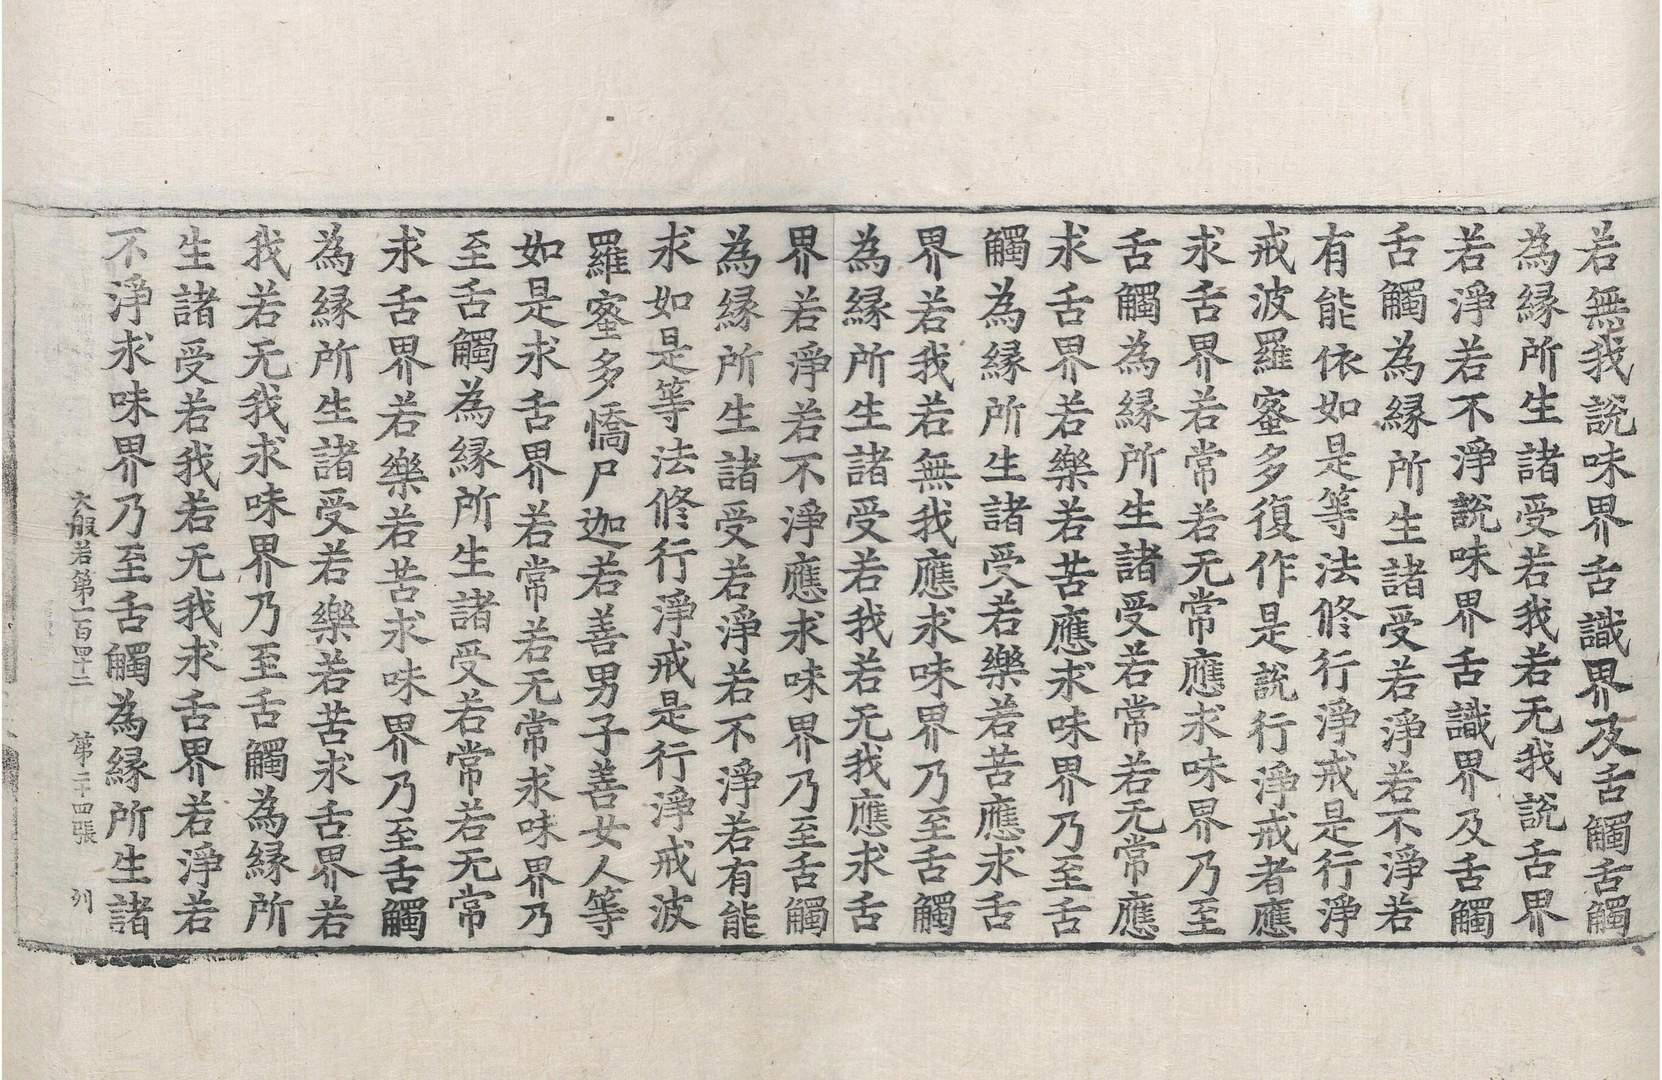 若無我說味界舌識界及舌觸舌觸
為縁所生諸受若我若无我說舌界
若淨若不淨說味界舌識界及舌觸
舌觸為縁所生諸受若淨若不淨若
有能依如是等法修行淨戒是行淨
戒波羅蜜多復作是說行淨戒者應
求舌界若常若无常應求味界乃至
舌觸為縁所生諸受若常若无常應
求舌界若樂若苦應求味界乃至舌
觸為縁所生諸受若樂若苦應求舌
界若我若無我應求味界乃至舌觸
為縁所生諸受若我若无我應求舌
界若淨若不淨應求味界乃至舌觸
為縁所生諸受若淨若不淨若有能
求如是等法修行淨戒是行淨戒波
羅蜜多憍尸迦若善男子善女人等
如是求舌界若常若无常求味界乃
至舌觸為縁所生諸受若常若无常
求舌界若樂若苦求味界乃至舌觸
為縁所生諸受若樂若苦求舌界若
我若无我求味界乃至舌觸為縁所
生諸受若我若无我求舌界若淨若
不淨求味界乃至舌觸為縁所生諸
大般若第一百四十二 第二十四張 列